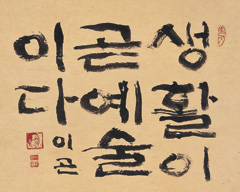 생활이
곧예술
이다
이곤